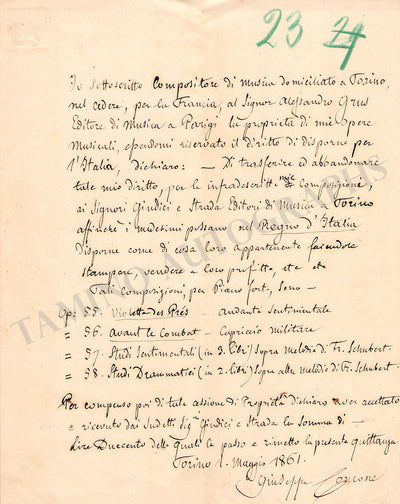 23 24
Io sottoscritto Compositore di Musica domiciliato a Torino,
nel cedere, per la Francia, al Signor Alessandro Grus
Editore di Musica a Parigi la proprietà di mie Opere
Musicali, essendomi riservato il diritto di disporne per
l'Italia, dichiaro: — Di trasferire ed abbandonare
tale mio diritto, per le infradescritte mie Composizioni,
ai Signori Giudici e Strada Editori di Musica a Torino
affinchè i medesimi possano nel Regno d'Italia
disporne come di cosa loro appartenente facendone
stampare, vendere a loro profitto, etc etc
Tali Composizioni, per Piano forte, sono —
Op: 55. Violette des Prés — Andante Sentimentale
= 56. Avant le Combat — Capriccio militare
= 57. Studi Sentimentali (in 3. libri) Sopra Melodie di Fr. Schubert.
= 58. Studi Drammatici (in 2. libri) Sopra altre melodie di Fr. Schubert.
Per compenso poi di tale cessione di Proprietà dichiaro aver accettato
e ricevuto dai Sudetti Sig.ri Giudici e Strada la Somma di —
Lire Duecento delle quali le passo e rimetto la presente quittanza
Torino 1. Maggio 1861.
Giuseppe Concone
TAMINO AUTOGRAPHS